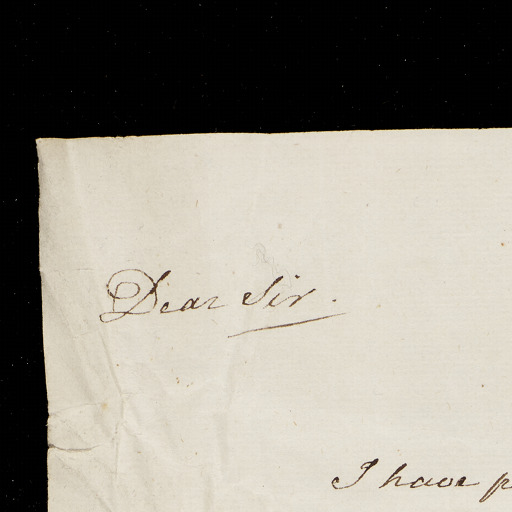 Dear Sir.
I have p